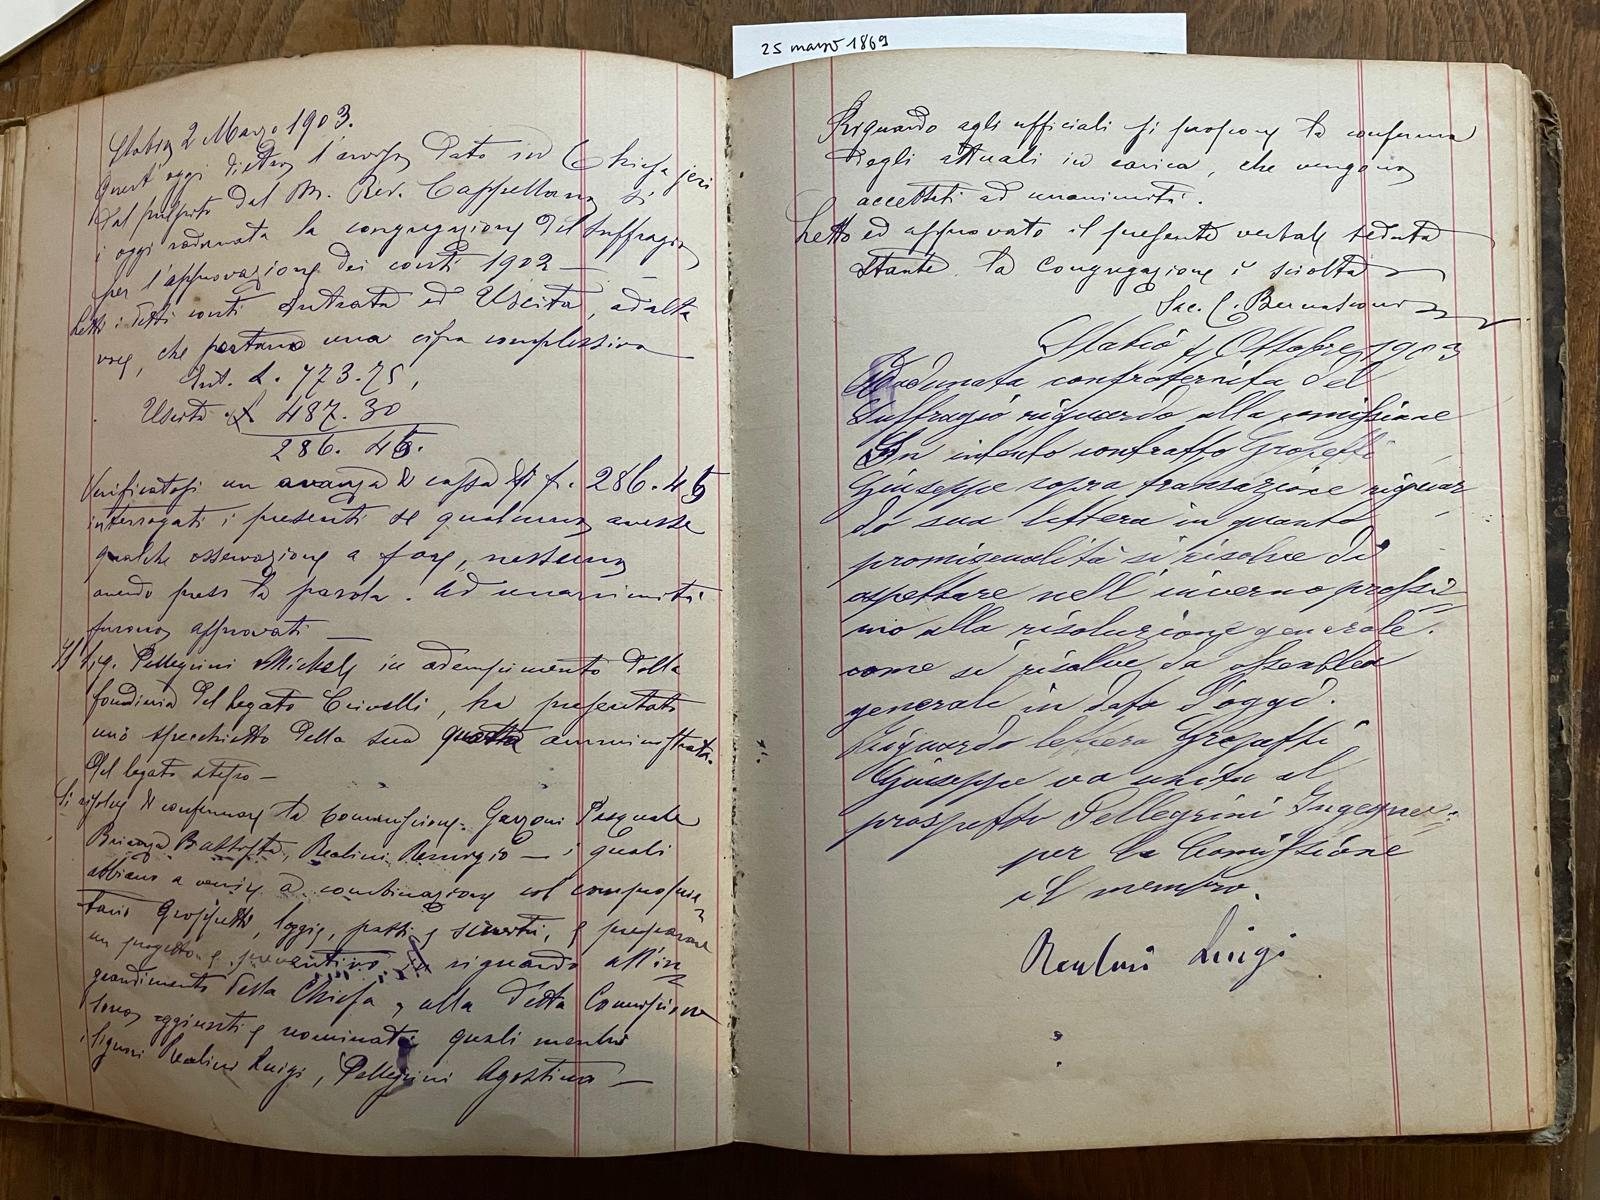 25 marzo 1869
Stabio 2 Marzo 1903.
Quest' oggi dietro l'avviso dato in Chiesa jeri
dal pulpito dal M. Rev. Cappellano si
è oggi radunata la congregazione del Suffragio
per l'approvazione dei conti 1902 —
Letti i detti conti Entrata ed Uscita, ad alta
voce, che portano una cifra complessiva
Ent. L. 773.75,
Uscita £ 487.30
286.45.
Verificatosi un avanzo di cassa di f. 286.45
interrogati i presenti se qualcuno avesse
qualche osservazione a fare, nessuno
avendo preso la parola. Ad unanimità
furono approvati —
Il Sig. Pellegrini Michele in adempimento della
del Legato Crivelli, ha presentato
uno specchietto della sua amministraz.
del legato stesso —
Si risolve di confermare la Commissione: Garzoni Pasquale
Brianza Battista, Realini Remigio — i quali
abbiano a venire a combinazione col comproprie-
tario Groppetti, loggie, patti e, e preparare
un progetto e preventivo in riguardo all'in-
grandimento della Chiesa, e alla detta Commissione
sono aggiunti e nominati quali membri
i signori Realini Luigi, Pellegrini Agostino —
Riguardo agli ufficiali si propone la conferma
degli attuali in carica, che vengono
accettati ad unanimità.
Letto ed approvato il presente verbale seduta
stante, la Congregazione è sciolta
Sac. C. Bernasconi
Stabio 4 Ottobre 1903
Radunata confraternita del
Suffragio riguardo alla comissione
In intento contratto
Giuseppe sopra transazione riguar
do sua lettera in quanto
promiscualità si risolve di
aspettare nell' inverno prossi-
mo alla risoluzione generale.
come si risolve da assemblea
generale in data d'oggi.
Riguardo lettera
Giuseppe va unita al
prospetto Pellegrini Ingegner:
per la Comissione
il membro.
Realini Luigi